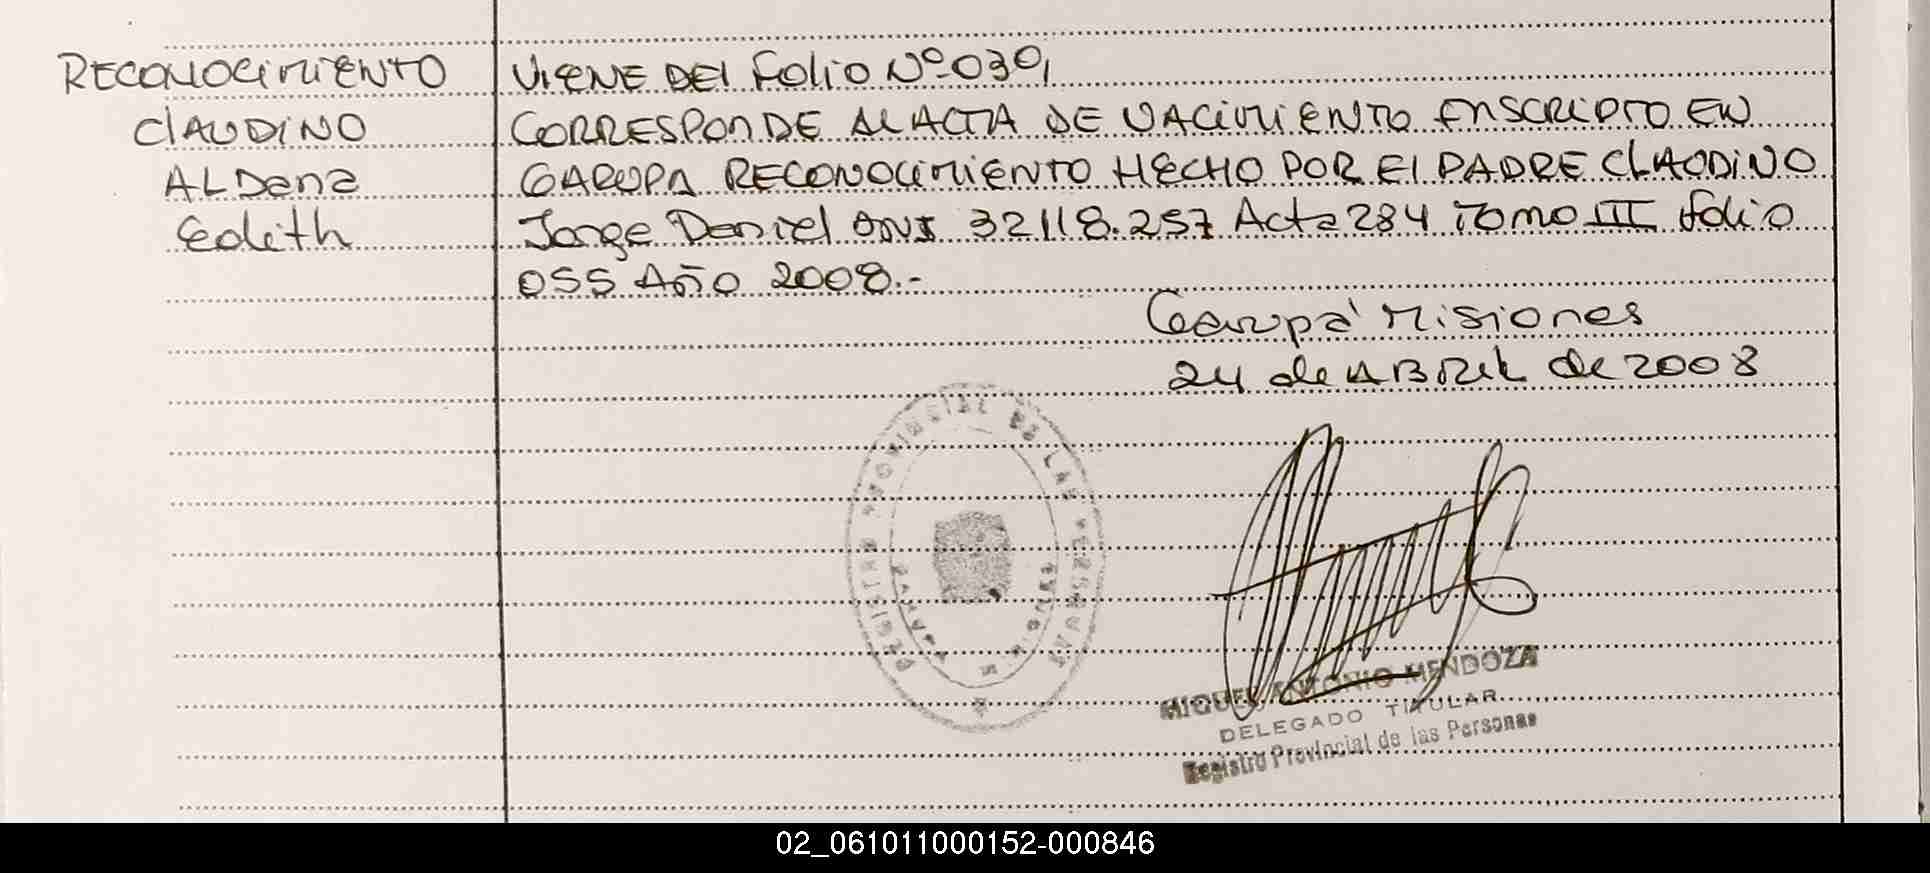 RECONOCIMIENTO
CLAUDINO
ALDANA
Edith
VIENE DEL FOLIO Nº 030,
CORRESPONDE AL ACTA DE NACIMIENTO ENSCRIPTO EN
GARUPA RECONOCIMIENTO HECHO POR EL PADRE CLAUDINO
Jorge Daniel DNI 32118.257 Acta 284 Tomo III folio
055 Año 2008.-
Garupá Misiones
24 de ABRIL de 2008
REGISTRO PROVINCIAL DE LAS PERSONAS
MIGUEL ANTONIO MENDOZA
DELEGADO TITULAR
Registro Provincial de las Personas
02_061011000152-000846